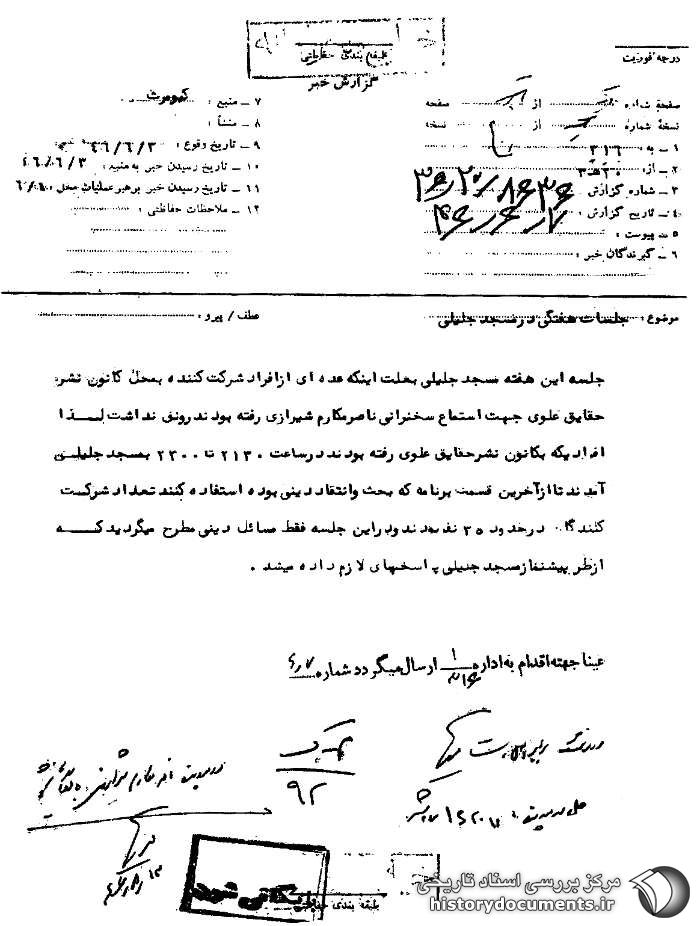 طبقه بندی حفاظتی
گزارش خبر
درجه فوریت
صفحه شماره از صفحه
نسخه شماره از نسخه
۱ – به : ۳۱۶
۲ – از :
۳ – شماره گزارش
۴ – تاریخ گزارش :
۵ – پیوست :
۶ – گیرندگان خبر :
۷ – منبع : کیومرث
۸ – منشأ :
۹ – تاریخ وقوع : ۴۶/۶/۳
۱۰ – تاریخ رسیدن خبر به منبع : ۴۶/۶/۳
۱۱ – تاریخ رسیدن خبر برهبر عملیات محل
۱۲ – ملاحظات حفاظتی :
موضوع : جلسات هفتگی در مسجد جلیلی
عطف / پیرو :
جلسه این هفته مسجد جلیلی بعلت اینکه عده ای از افراد شرکت کننده بمحل کانون نشر
حقایق علوی جهت استماع سخنرانی ناصر مکارم شیرازی رفته بودند رونق نداشت لذا
افرادیکه بکانون نشر حقایق علوی رفته بودند در ساعت ۲۱۳۰ تا ۲۲۰۰ بمسجد جلیلی
آمدند تا از آخرین قسمت برنامه که بحث وانتقاد دینی بوده استفاده کنند تعداد شرکت
کنندگان در حدود ۳۵ نفر بودند و در این جلسه فقط مسائل دینی مطرح میگردید که
از طرف پیشنماز مسجد جلیلی پاسخهای لازم داده میشد .
عینا جهت اقدام به اداره ۱/۳۱۶ ارسال میگردد شماره
۹۲
بایگانی شود
طبقه بندی حفاظتی
مرکز بررسی اسناد تاریخی
historydocuments.ir